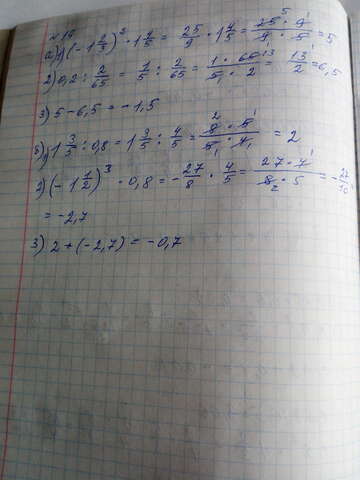 № 16
а) 1) (-1 2/3)² · 1 4/5 = 25/9 · 1 4/5 = 25 · 9/9 · 5 = 5
2) 0,2 : 2/65 = 1/5 : 2/65 = 1 · 65/5 · 2 = 13/2 = 6,5
3) 5 - 6,5 = -1,5
б) 1) 1 3/5 : 0,8 = 1 3/5 : 4/5 = 8 · 5/5 · 4 = 2
2) (-1 1/2)³ · 0,8 = -27/8 · 4/5 = 27 · 4/8 · 5 = -27/10
= -2,7
3) 2 + (-2,7) = -0,7